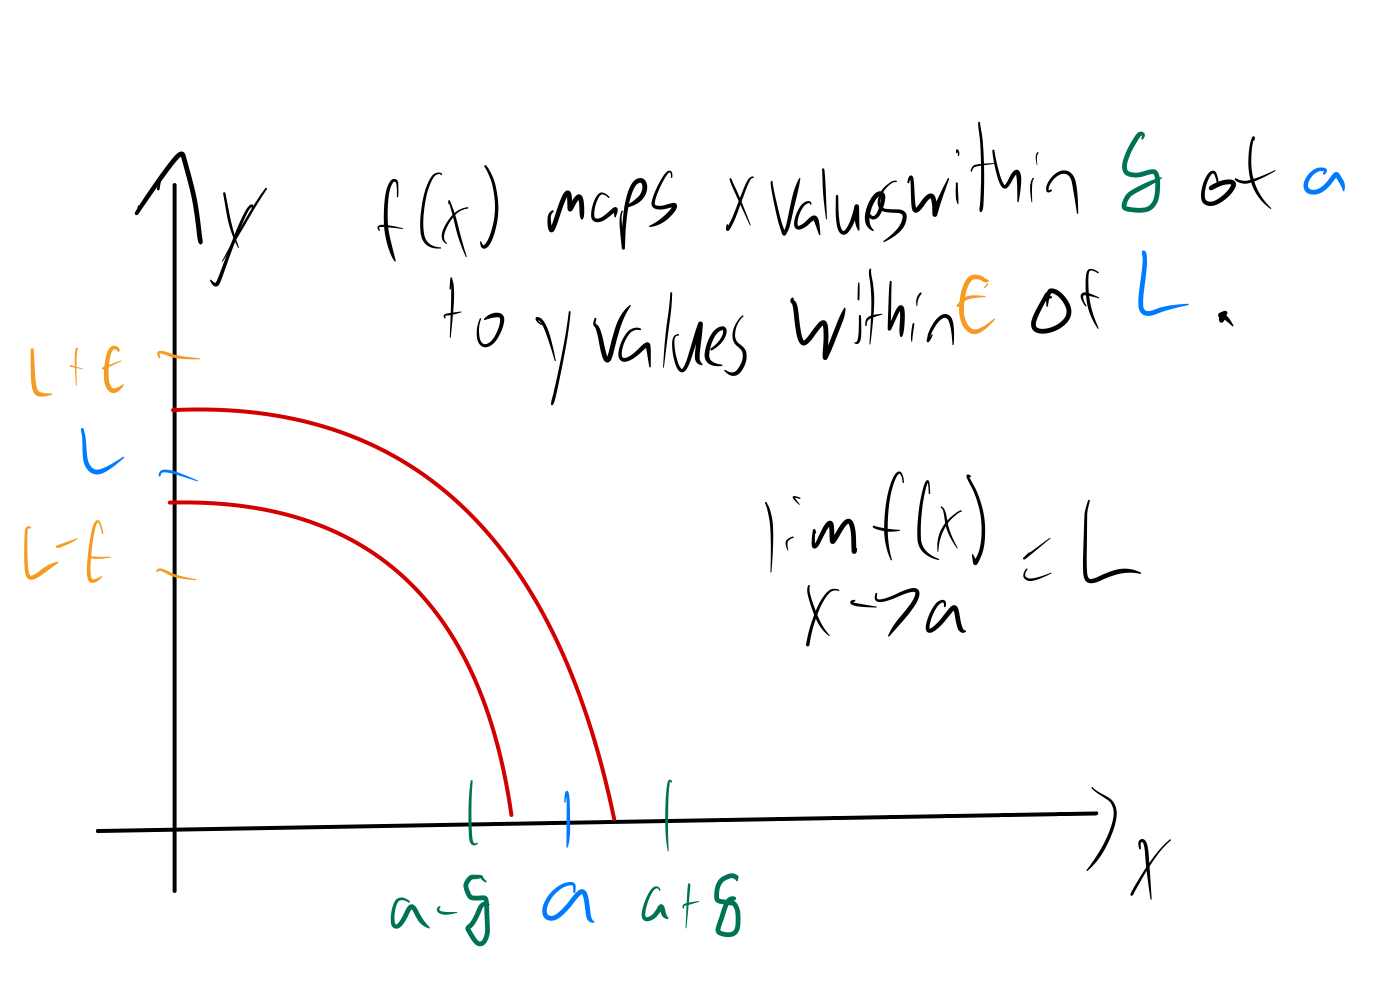 y
f(x) maps x values within δ of a
to y values within ε of L.
L+ε
L
L-ε
lim f(x) = L
x→a
a-δ a a+δ
x